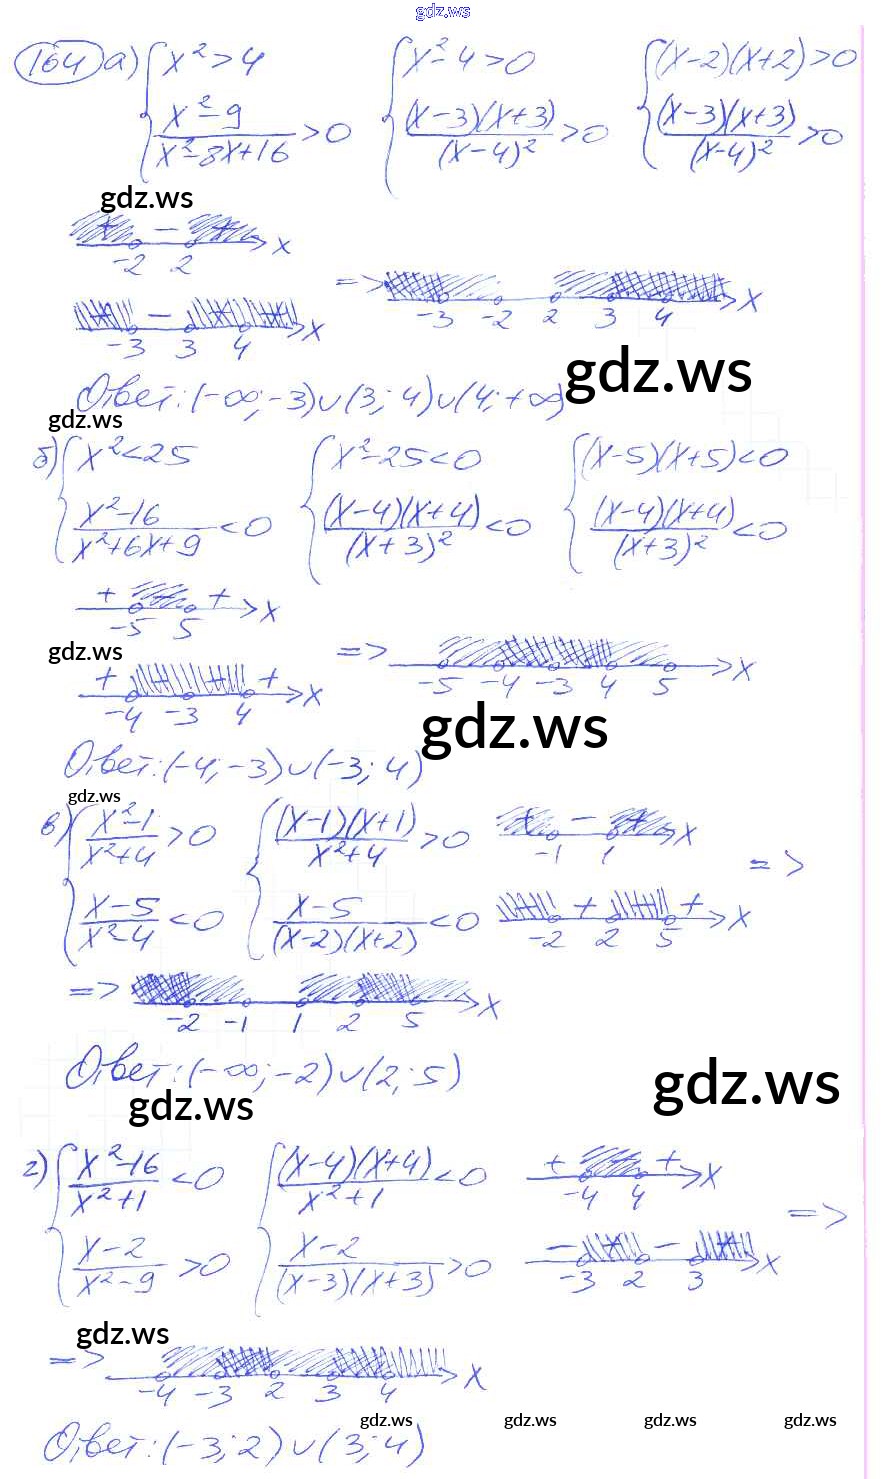 gdz.ws
164 а) { x² > 4 { x² - 4 > 0 { (x-2)(x+2) > 0
(x² - 9)/(x² - 8x + 16) > 0 ((x-3)(x+3))/((x-4)²) > 0 ((x-3)(x+3))/((x-4)²) > 0
gdz.ws
+ - + x
-2 2
=> x
-3 -2 2 3 4
+ - + + x
-3 3 4
gdz.ws
Ответ: (-∞; -3) ∪ (3; 4) ∪ (4; +∞)
gdz.ws
б) { x² < 25 { x² - 25 < 0 { (x-5)(x+5) < 0
(x² - 16)/(x² + 6x + 9) < 0 ((x-4)(x+4))/((x+3)²) < 0 ((x-4)(x+4))/((x+3)²) < 0
+ - + x
-5 5
gdz.ws
=> x
-5 -4 -3 4 5
+ - - + x
-4 -3 4
gdz.ws
Ответ: (-4; -3) ∪ (-3; 4)
gdz.ws
в) { (x² - 1)/(x² + 4) > 0 { ((x-1)(x+1))/(x² + 4) > 0 + - + x
-1 1
=>
(x - 5)/(x² - 4) < 0 (x - 5)/((x-2)(x+2)) < 0 - + - + x
-2 2 5
=> x
-2 -1 1 2 5
Ответ: (-∞; -2) ∪ (2; 5)
gdz.ws
gdz.ws
г) { (x² - 16)/(x² + 1) < 0 { ((x-4)(x+4))/(x² + 1) < 0 + - + x
-4 4
=>
(x - 2)/(x² - 9) > 0 (x - 2)/((x-3)(x+3)) > 0 - + - + x
-3 2 3
gdz.ws
=> x
-4 -3 2 3 4
gdz.ws gdz.ws gdz.ws gdz.ws
Ответ: (-3; 2) ∪ (3; 4)